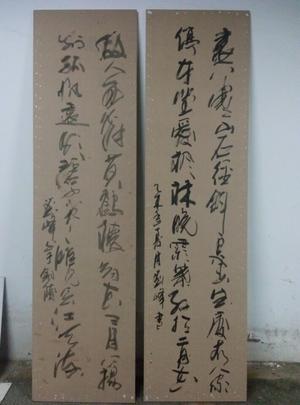 遠上寒山石徑斜白雲生處有人家
停車坐愛楓林晚霜葉紅於二月花
峰書
故人西辭黄鶴樓烟花三月下揚
州孤帆遠影碧空尽唯見長江天際流